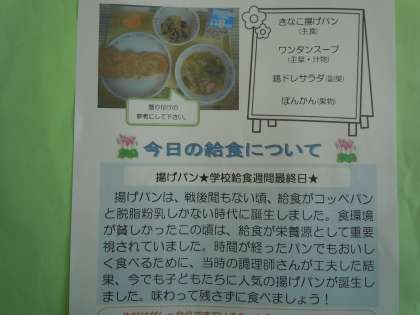 きなこ揚げパン
(主食)
ワンタンスープ
(主菜・汁物)
鶏ドレサラダ(副菜)
ぽんかん(果物)
盛り付けの
参考にして下さい。
今日の給食について
揚げパン★学校給食週間最終日★
揚げパンは、戦後間もない頃、給食がコッペパン
と脱脂粉乳しかない時代に誕生しました。食環境
が貧しかったこの頃は、給食が栄養源として重要
視されていました。時間が経ったパンでもおいし
く食べるために、当時の調理師さんが工夫した結
果、今でも子どもたちに人気の揚げパンが誕生し
ました。味わって残さずに食べましょう！